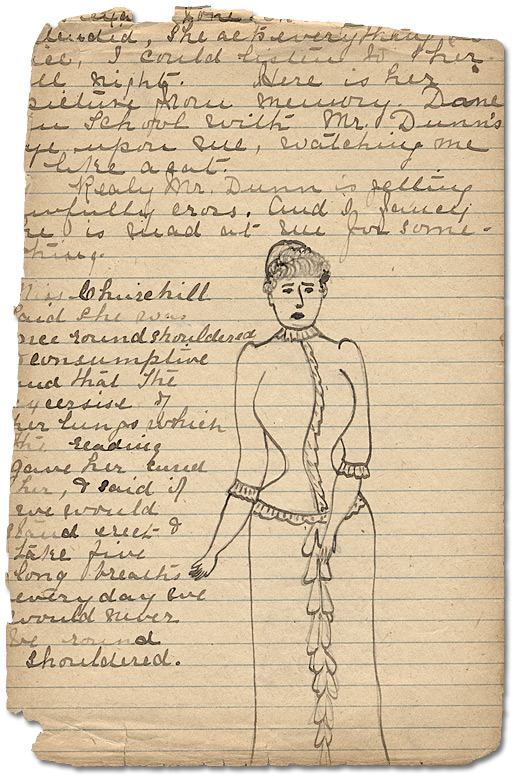 splendid, She acts everything so
nice, I could listen to her
all night. Here is her
picture from memory. Done
in School with Mr. Dunn's
eye upon me, watching me
like a cat.
Realy Mr. Dunn is getting
awfully cross. And I fancy
he is mad at me for some-
thing.
Miss Churchill
said she was
once roundshouldered
& consumptive
and that the
excersise of
her lungs which
the reading
gave her cured
her, & said if
we would
stand erect &
take five
long breaths
everyday we
would never
be round
shouldered.